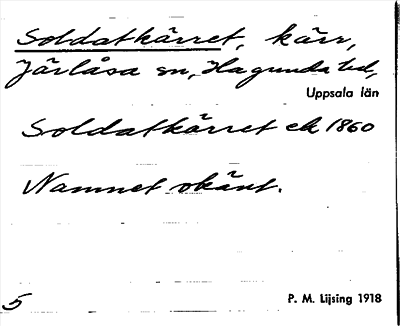 Soldatkärret, kärr,
Järlåsa sn, Hagunda hd,
Uppsala län
Soldatkärret ek 1860
Namnet okänt.
5 P. M. Lijsing 1918